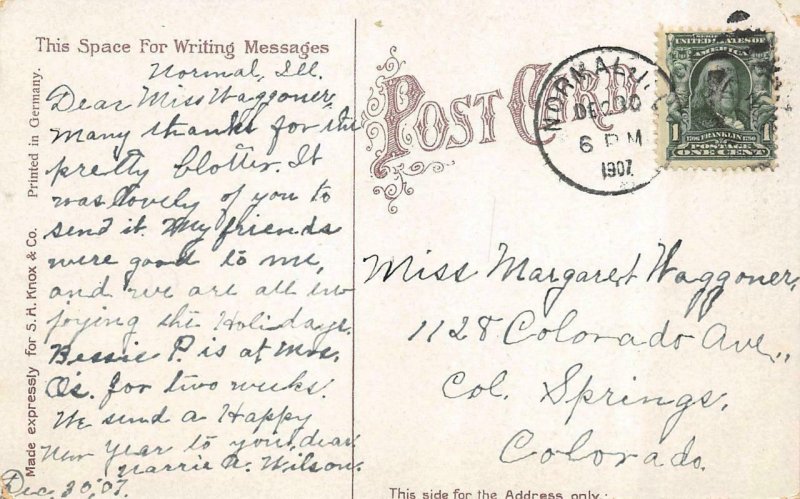 This Space For Writing Messages
Normal, Ill.
Dear Miss Waggoner,
Many thanks for the
pretty blotter. It
was lovely of you to
send it. My friends
were good to me,
and we are all en
joying the Holidays.
Bessie P. is at Mrs.
O's. for two weeks.
We send a Happy
New Year to you, dear.
A. Wilson.
Dec. 30, '07.
Made expressly for S. H. Knox & Co. Printed in Germany.
POST CARD
NORMAL, ILL.
DEC 30
6 PM
1907
SERIES 1902
UNITED STATES OF
AMERICA
1 1706 FRANKLIN 1790 1
POSTAGE
ONE CENT
Miss Margaret Waggoner,
1128 Colorado Ave.,
Col. Springs,
Colorado.
This side for the Address only.